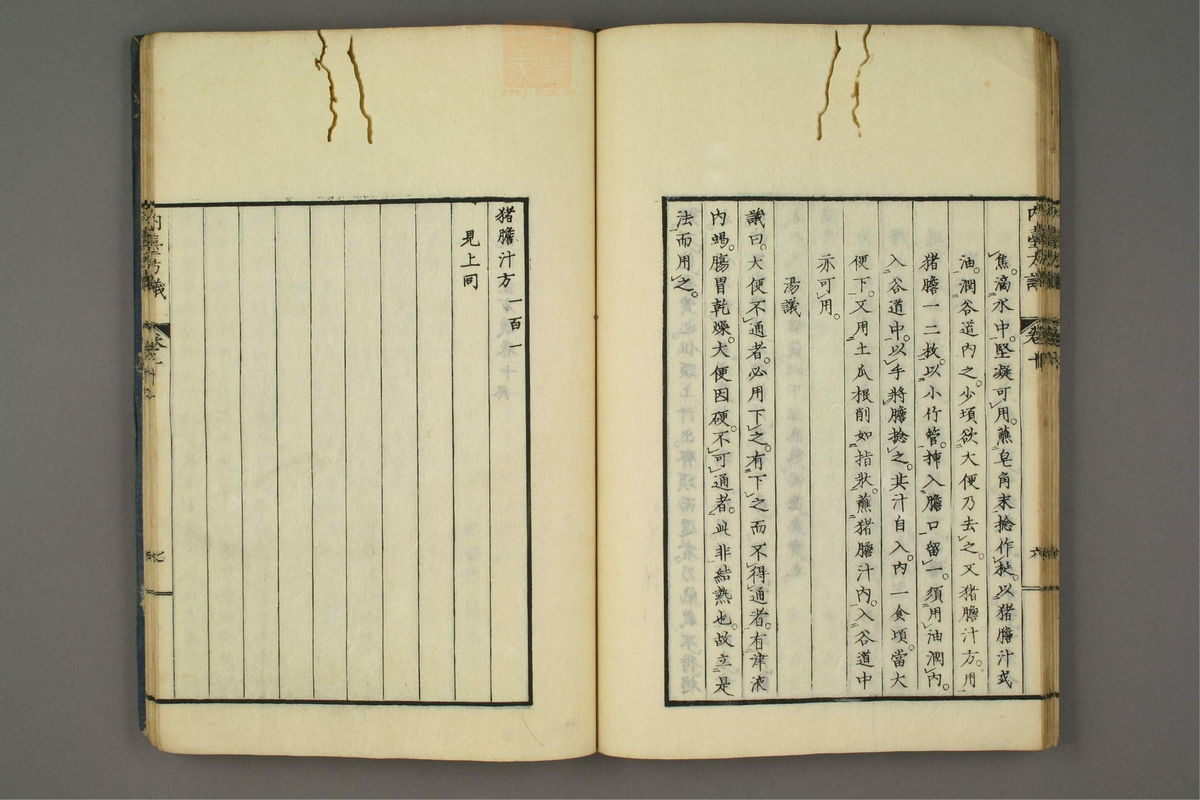 焦。滴水中。堅凝可用。蘸皂角末捻作挺。以猪膽汁或
油。潤谷道內之。少頃欲大便乃去之。又猪膽汁方。用
猪膽一二枚。以小竹管。揷入膽口留一。須用油潤內。
入谷道中。以手將膽捻之。其汁自入。內一食頃。當大
便下。又用土瓜根削如指狀。蘸猪膽汁內。入谷道中
亦可用。
湯議
議曰。大便不通者。必用下之。有下之而不得通者。有津液
內竭。腸胃乾燥。大便因硬。不可通者。此非結熱也。故立是
法而用之。
猪膽汁方 一百一
見上同
內臺方議
卷十
六